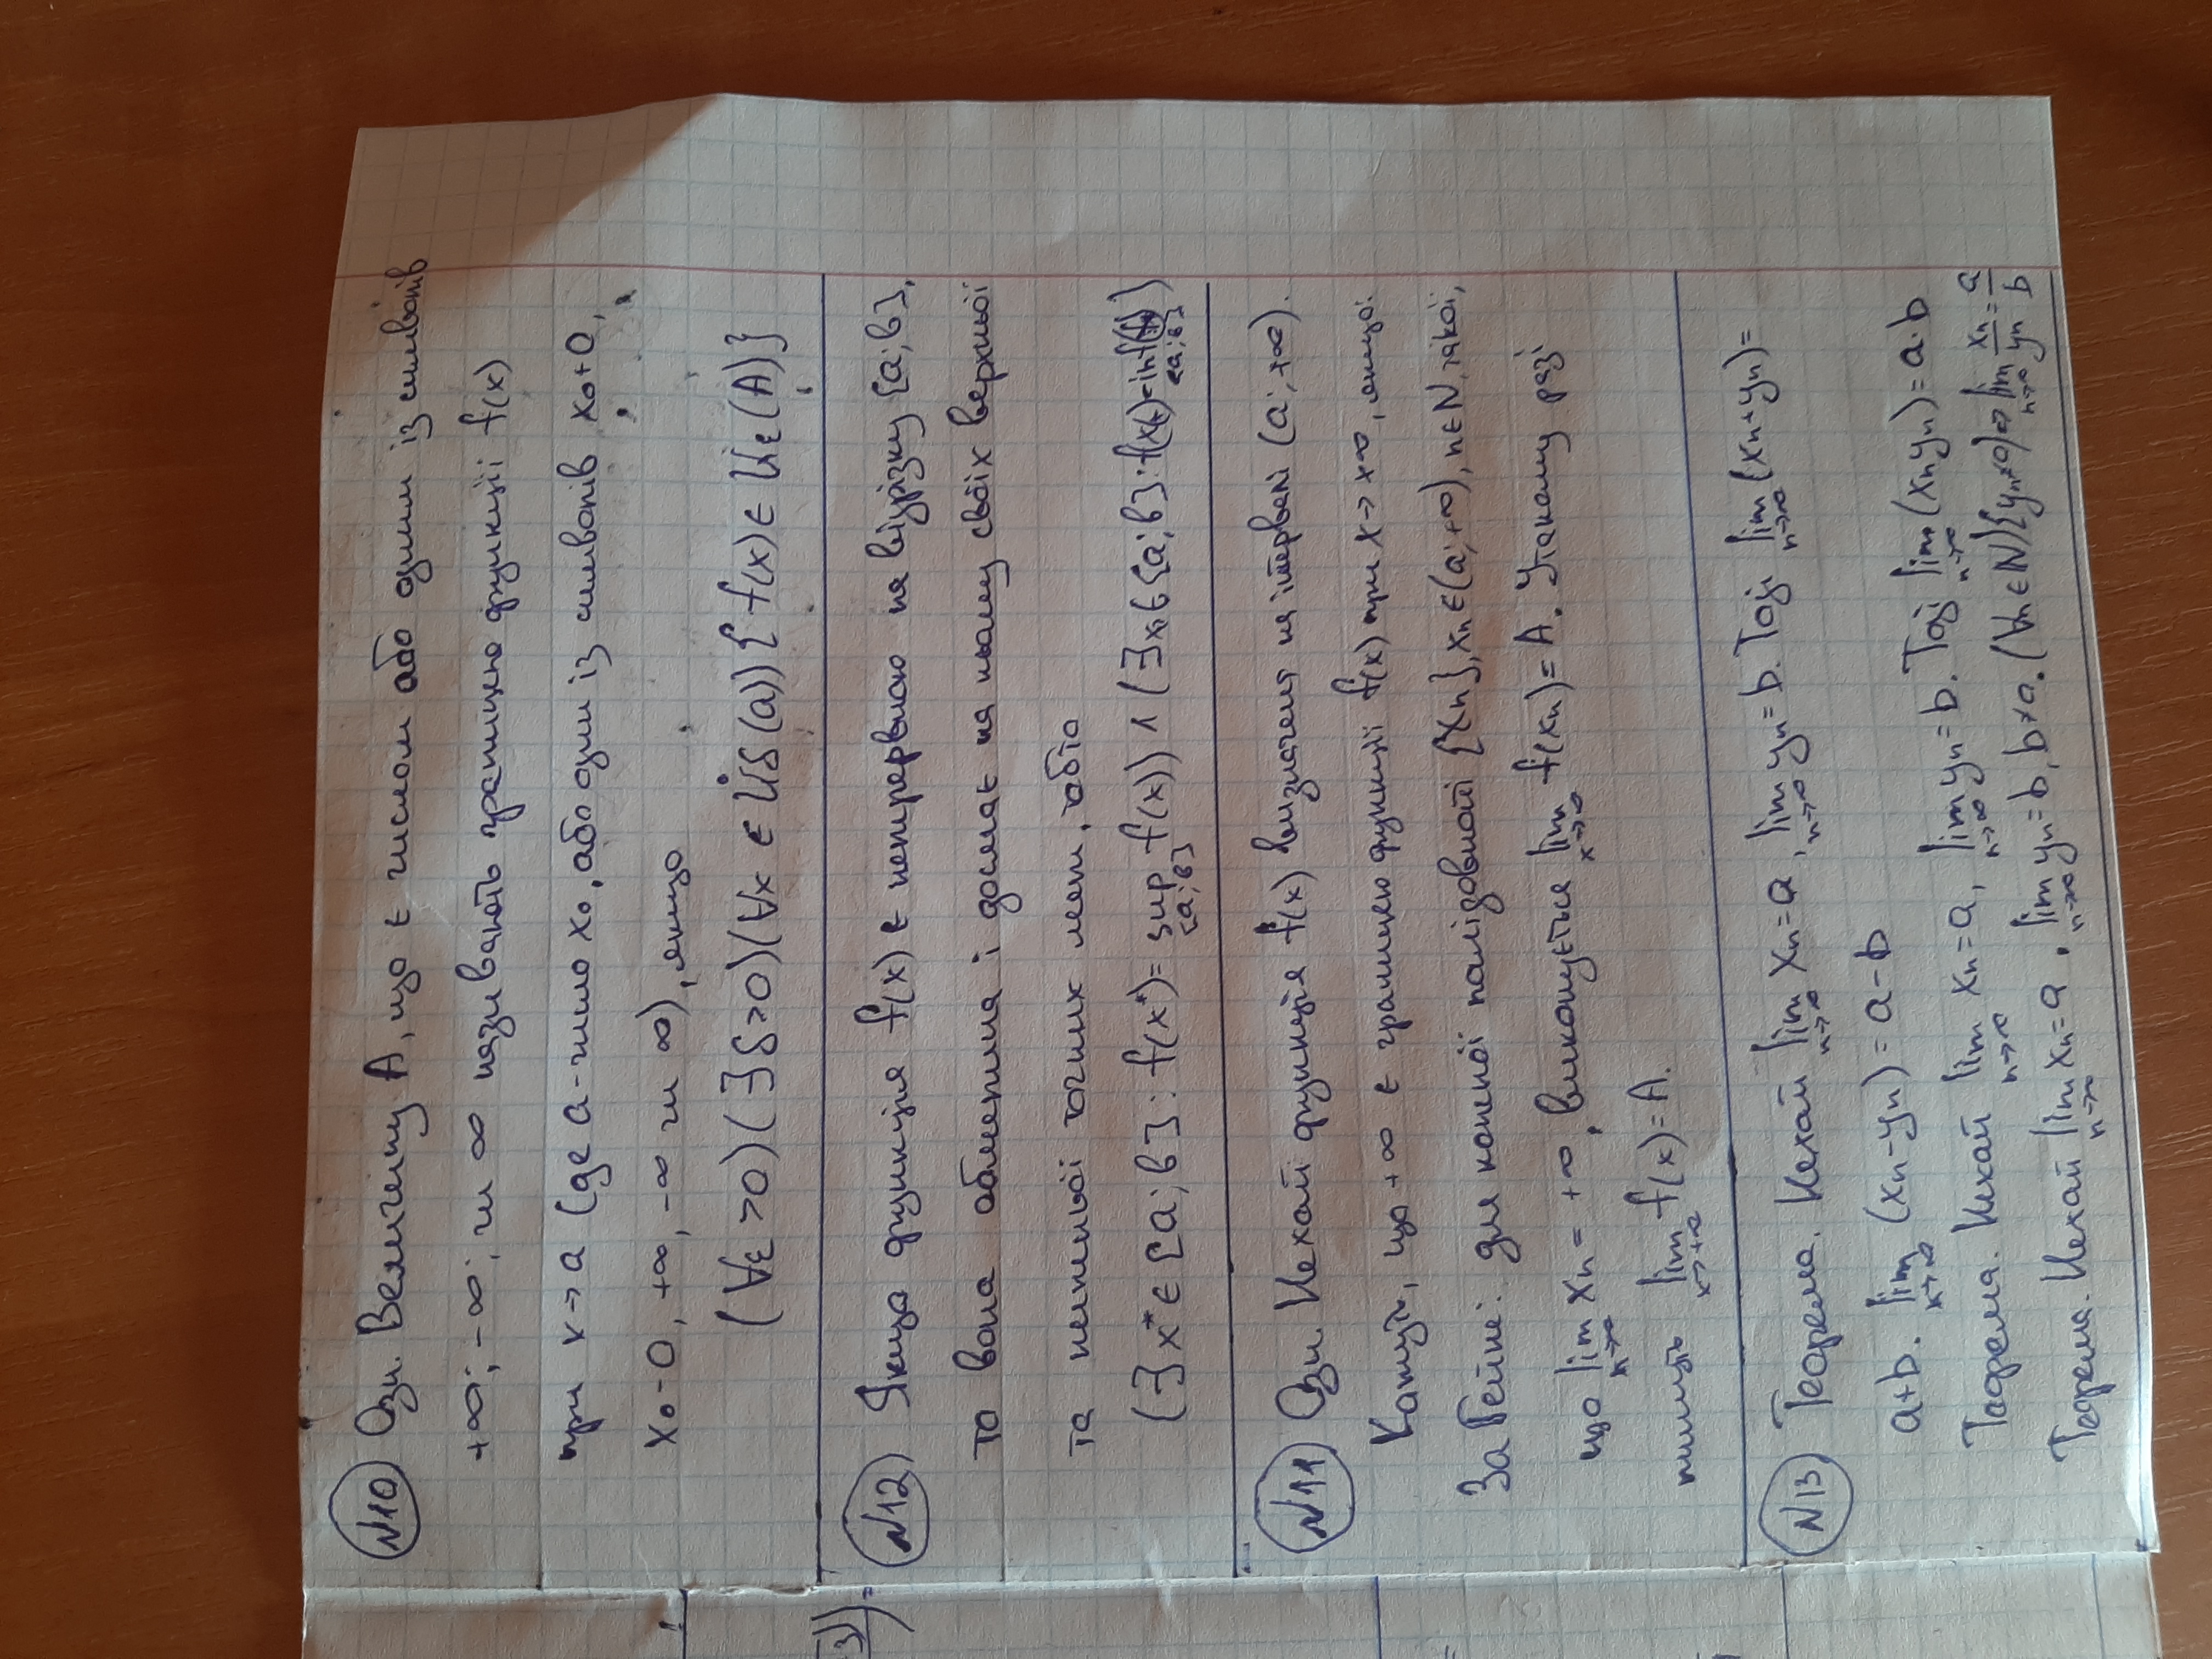 №10 Озн. Величину А, що є числом або одним із символів
+∞; -∞; чи ∞ називають границею функції f(x)
при x→a (де a-число x₀, або один із символів x₀+0,
x₀-0, +∞, -∞ чи ∞), якщо
(∀ε >0)(∃δ>0)(∀x ∈ U̇δ(a)){f(x)∈ Uε(A)}
№12 Якщо функція f(x) є неперервною на відрізку [a;b],
то вона обмежена і досягає на ньому своїх верхньої
та нижньої точних меж, тобто
(∃x*∈[a;b]: f(x*)= sup f(x)) ∧ (∃x∈[a;b]: f(x)=inf f(x))
[a;b] [a;b]
№11 Озн. Нехай функція f(x) визначена на інтервалі (a;+∞).
Кажуть, що +∞ є границею функції f(x) при x→+∞, якщо:
За Гейне: для кожної послідовності {xₙ}, xₙ∈(a;+∞), n∈N, такої,
що lim xₙ = +∞, виконується lim f(xₙ)= A. У такому разі
n→∞ x→∞
пишуть lim f(x)=A.
x→+∞
№13 Теорема. Нехай lim xₙ=a, lim yₙ=b. Тоді lim (xₙ+yₙ)=
n→∞ n→∞ n→∞
a+b. lim (xₙ-yₙ)=a-b
n→∞
Теорема. Нехай lim xₙ=a, lim yₙ=b. Тоді lim (xₙyₙ)=a·b
n→∞ n→∞ n→∞
Теорема. Нехай lim xₙ=a, lim yₙ=b, b≠0. (∀n∈N){yₙ≠0}⇒ lim xₙ/yₙ=a/b
n→∞ n→∞ n→∞